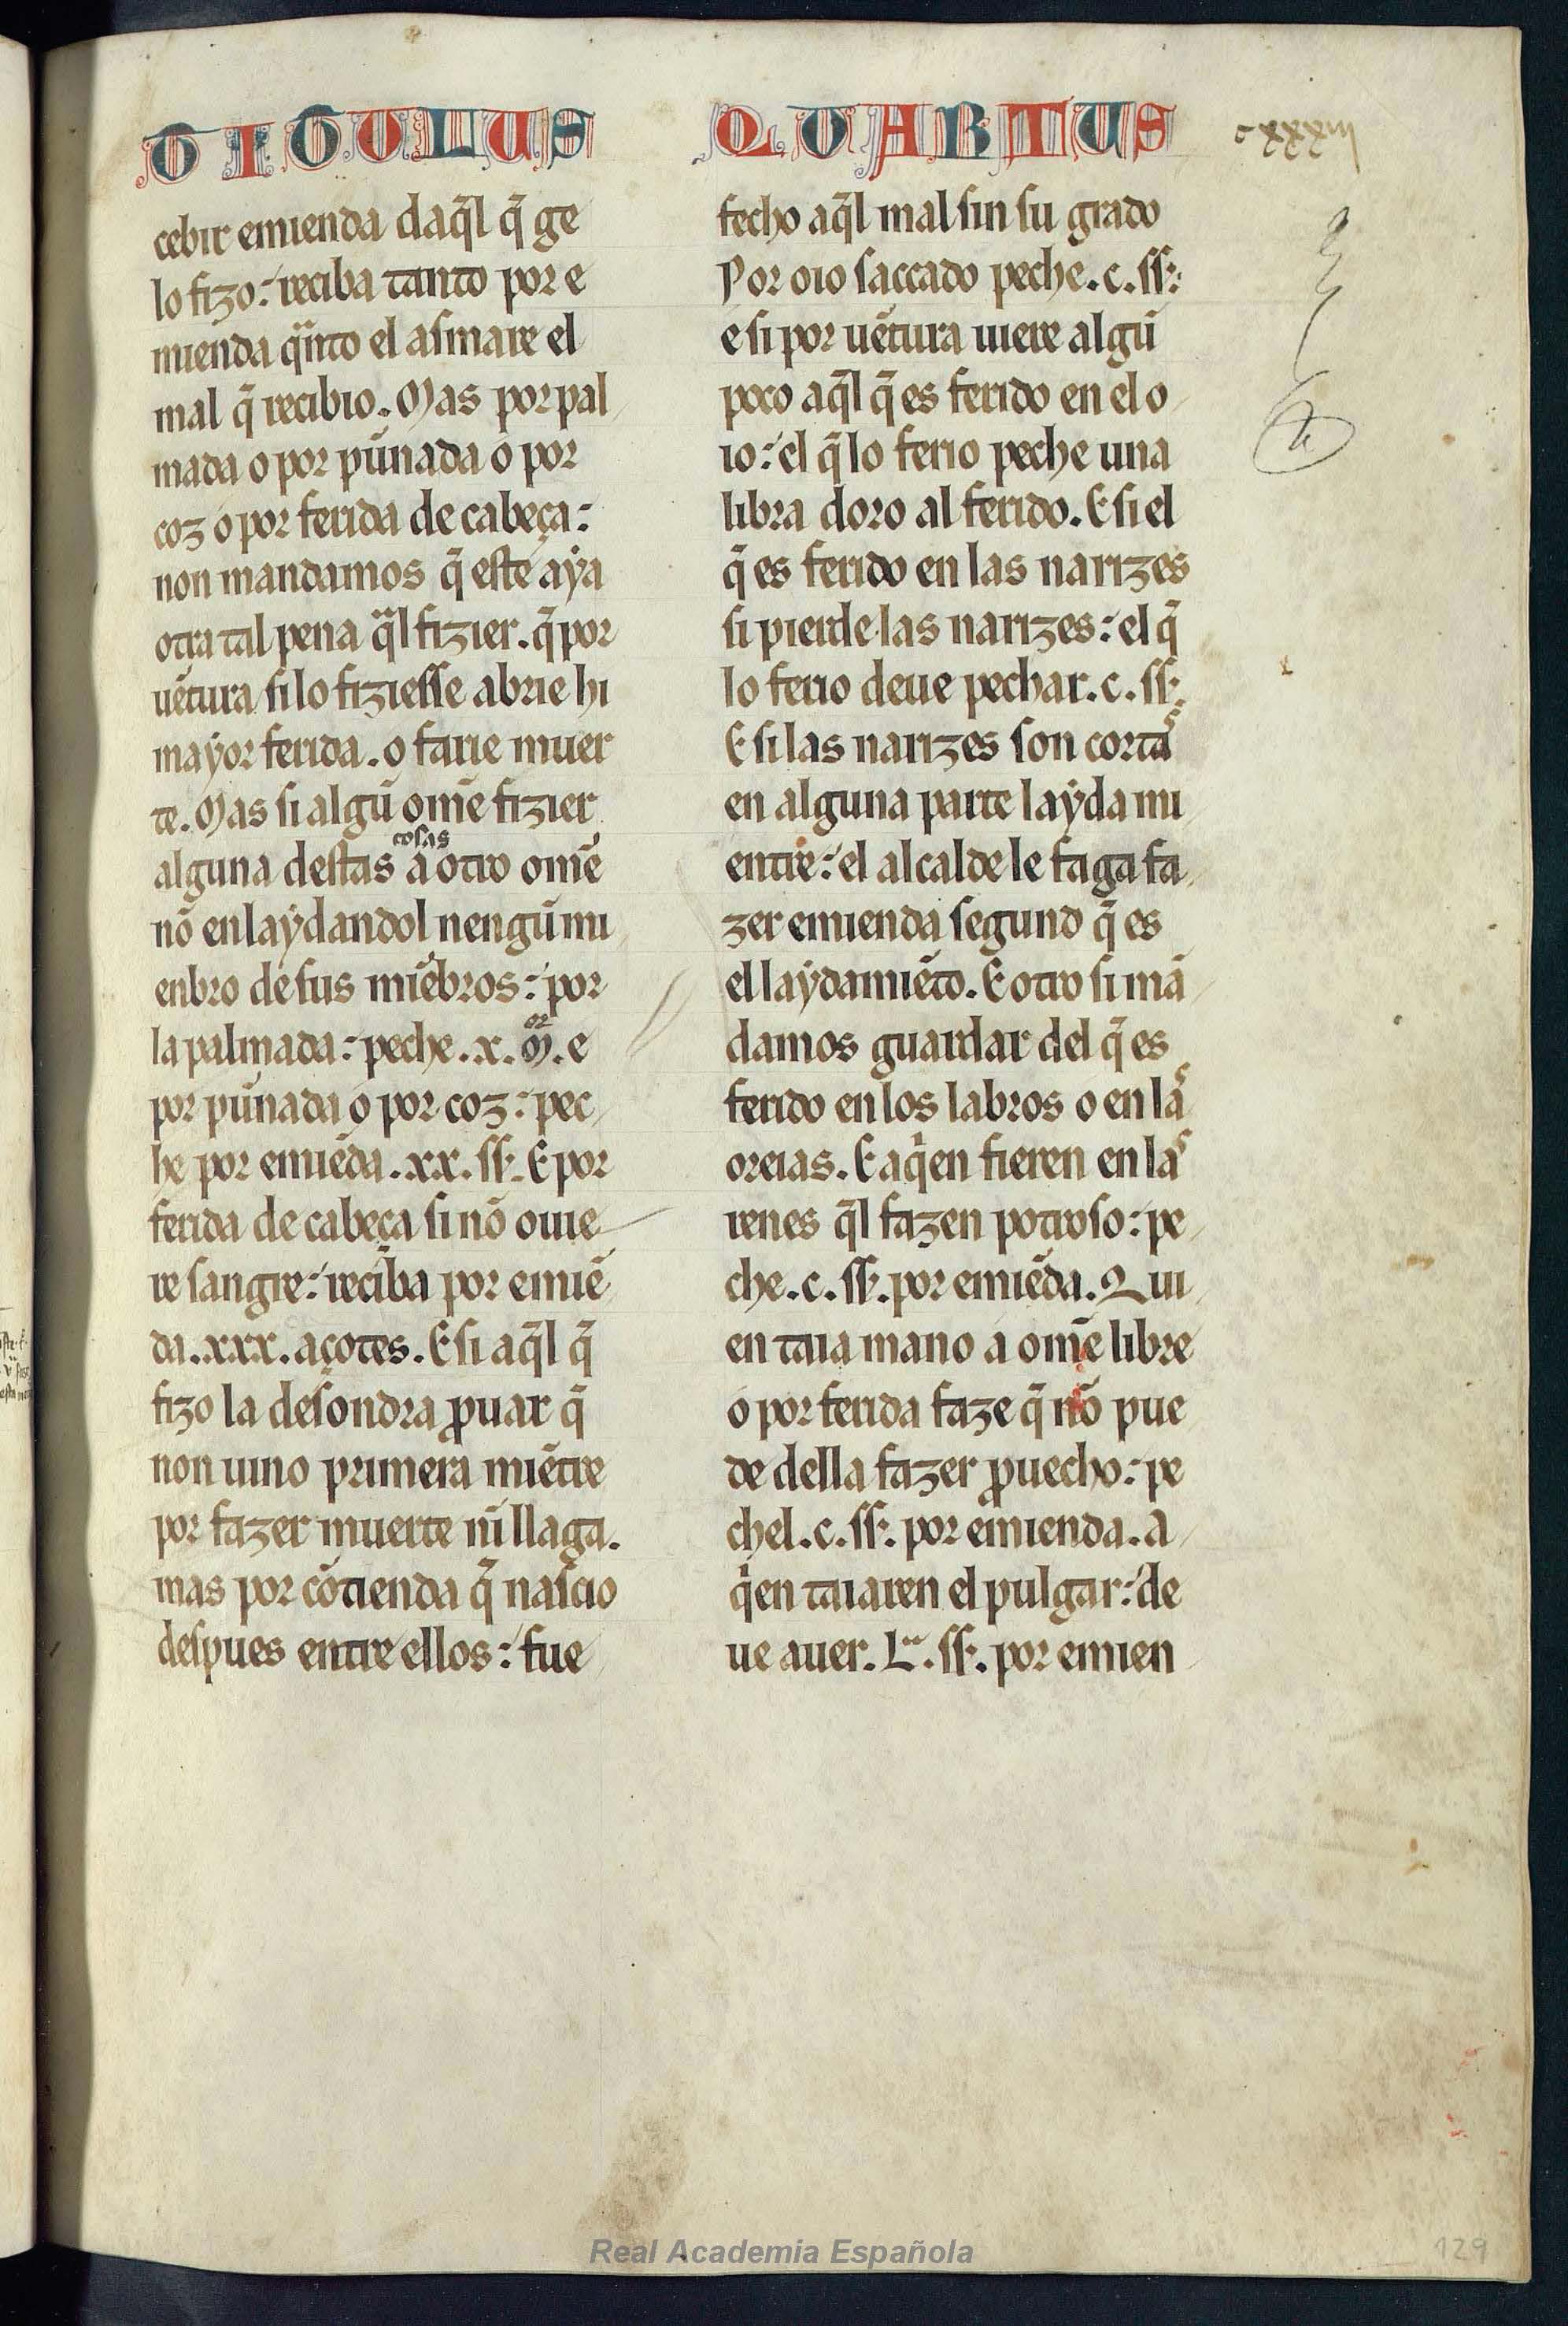 TITULUS QUARTUS
cxxxiii
cebir emienda daq̃l q̃ ge
lo fizo: reciba tanto por e
mienda q̈nto el asmare el
mal q̃ recibio. Mas por pal
mada o por pũnada o por
coz o por ferida de cabeça:
non mandamos q̃ este aẏa
otra tal pena q̈l fizier. q̃ por
uẽtura si lo fiziesse abrie hi
maẏor ferida. o farie muer
te. Mas si algũ om̃e fizier
alguna destas cosas a otro om̃e
nõ enlaẏdandol nengũ mi
enbro de sus miẽbros: por
la palmada: peche .x. m̃or. e
por pũnada o por coz: pec
he por emiẽda .xx. ss. E por
ferida de cabeça si nõ ouie
re sangre: reciba por emiẽ
da .xxx. açotes. E si aq̃l q̃
fizo la desondra ꝓuar q̃
non uino primera miẽtre
por fazer muerte nĩ llaga.
mas por cõtienda q̃ nascio
despues entre ellos: fue
fecho aq̃l mal sin su grado
Por oio saccado peche .c. ss:
e si por uẽtura uiere algũ
poco aq̃l q̃ es ferido en el o
io: el q̃ lo ferio peche una
libra doro al ferido. E si el
q̃ es ferido en las narizes
si pierde las narizes: el q̃
lo ferio deue pechar .c. ss.
E si las narizes son cortaˢ
en alguna parte laẏda mi
entre: el alcalde le faga fa
zer emienda segund q̃ es
el laẏdamiẽto. E otro si mã
damos guardar del q̃ es
ferido en los labros o en laˢ
oreias. E aqͥen fieren en laˢ
renes q̃l fazen potroso: pe
che .c. ss. por emiẽda. Qui
en taia mano a om̃e libre
o por ferida faze q̃ nõ pue
de della fazer ꝓuecho: pe
chel .c. ss. por emienda. A
qͥen taiaren el pulgar: de
ue auer .L. ss. por emien
129
Real Academia Española